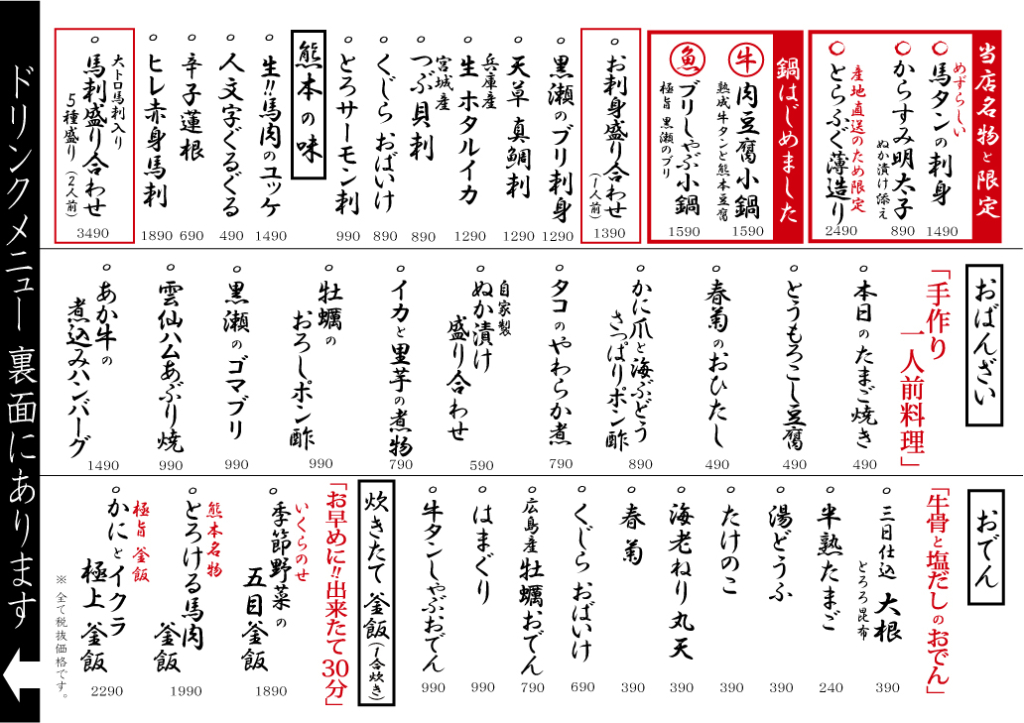 当店名物と限定
めずらしい
馬タンの刺身
1490
からすみ明太子
ぬか漬け添え
890
産地直送のため限定
とらふぐ薄造り
2490
鍋はじめました
牛
肉豆腐小鍋
熟成牛タンと熊本豆腐
1590
魚
ブリしゃぶ小鍋
極旨 黒瀬のブリ
1590
お刺身盛り合わせ
(1人前)
1390
黒瀬のブリ刺身
1290
天草 真鯛刺
1290
兵庫産
生 ホタルイカ
1290
宮城産
つぶ貝刺
890
くじら おばいけ
890
とろサーモン刺
990
熊本の味
生!!馬肉のユッケ
1490
人文字ぐるぐる
490
辛子蓮根
690
ヒレ赤身馬刺
1890
大トロ馬刺入り
馬刺盛り合わせ
5種盛り(2人前)
3490
おばんざい
「手作り
一人前料理」
本日のたまご焼き
490
とうもろこし豆腐
490
春菊のおひたし
490
かに爪と海ぶどう
さっぱりポン酢
890
タコのやわらか煮
790
自家製
ぬか漬け
盛り合わせ
590
イカと里芋の煮物
790
牡蠣の
おろしポン酢
990
黒瀬のゴマブリ
990
雲仙ハムあぶり焼
990
あか牛の
煮込みハンバーグ
1490
おでん
「牛骨と塩だしのおでん」
三日仕込 大根
とろろ昆布
390
半熟たまご
240
湯どうふ
390
たけのこ
390
海老ねり丸天
390
春菊
390
くじら おばいけ
690
広島産 牡蠣おでん
790
はまぐり
990
牛タンしゃぶおでん
990
炊きたて 釜飯(1合炊き)
「お早めに!!出来たて30分」
いくらのせ
季節野菜の
五目釜飯
1890
熊本名物
とろける馬肉
釜飯
1990
極旨 釜飯
かにとイクラ
極上 釜飯
2290
※ 全て税抜価格です。
ドリンクメニュー 裏面にあります